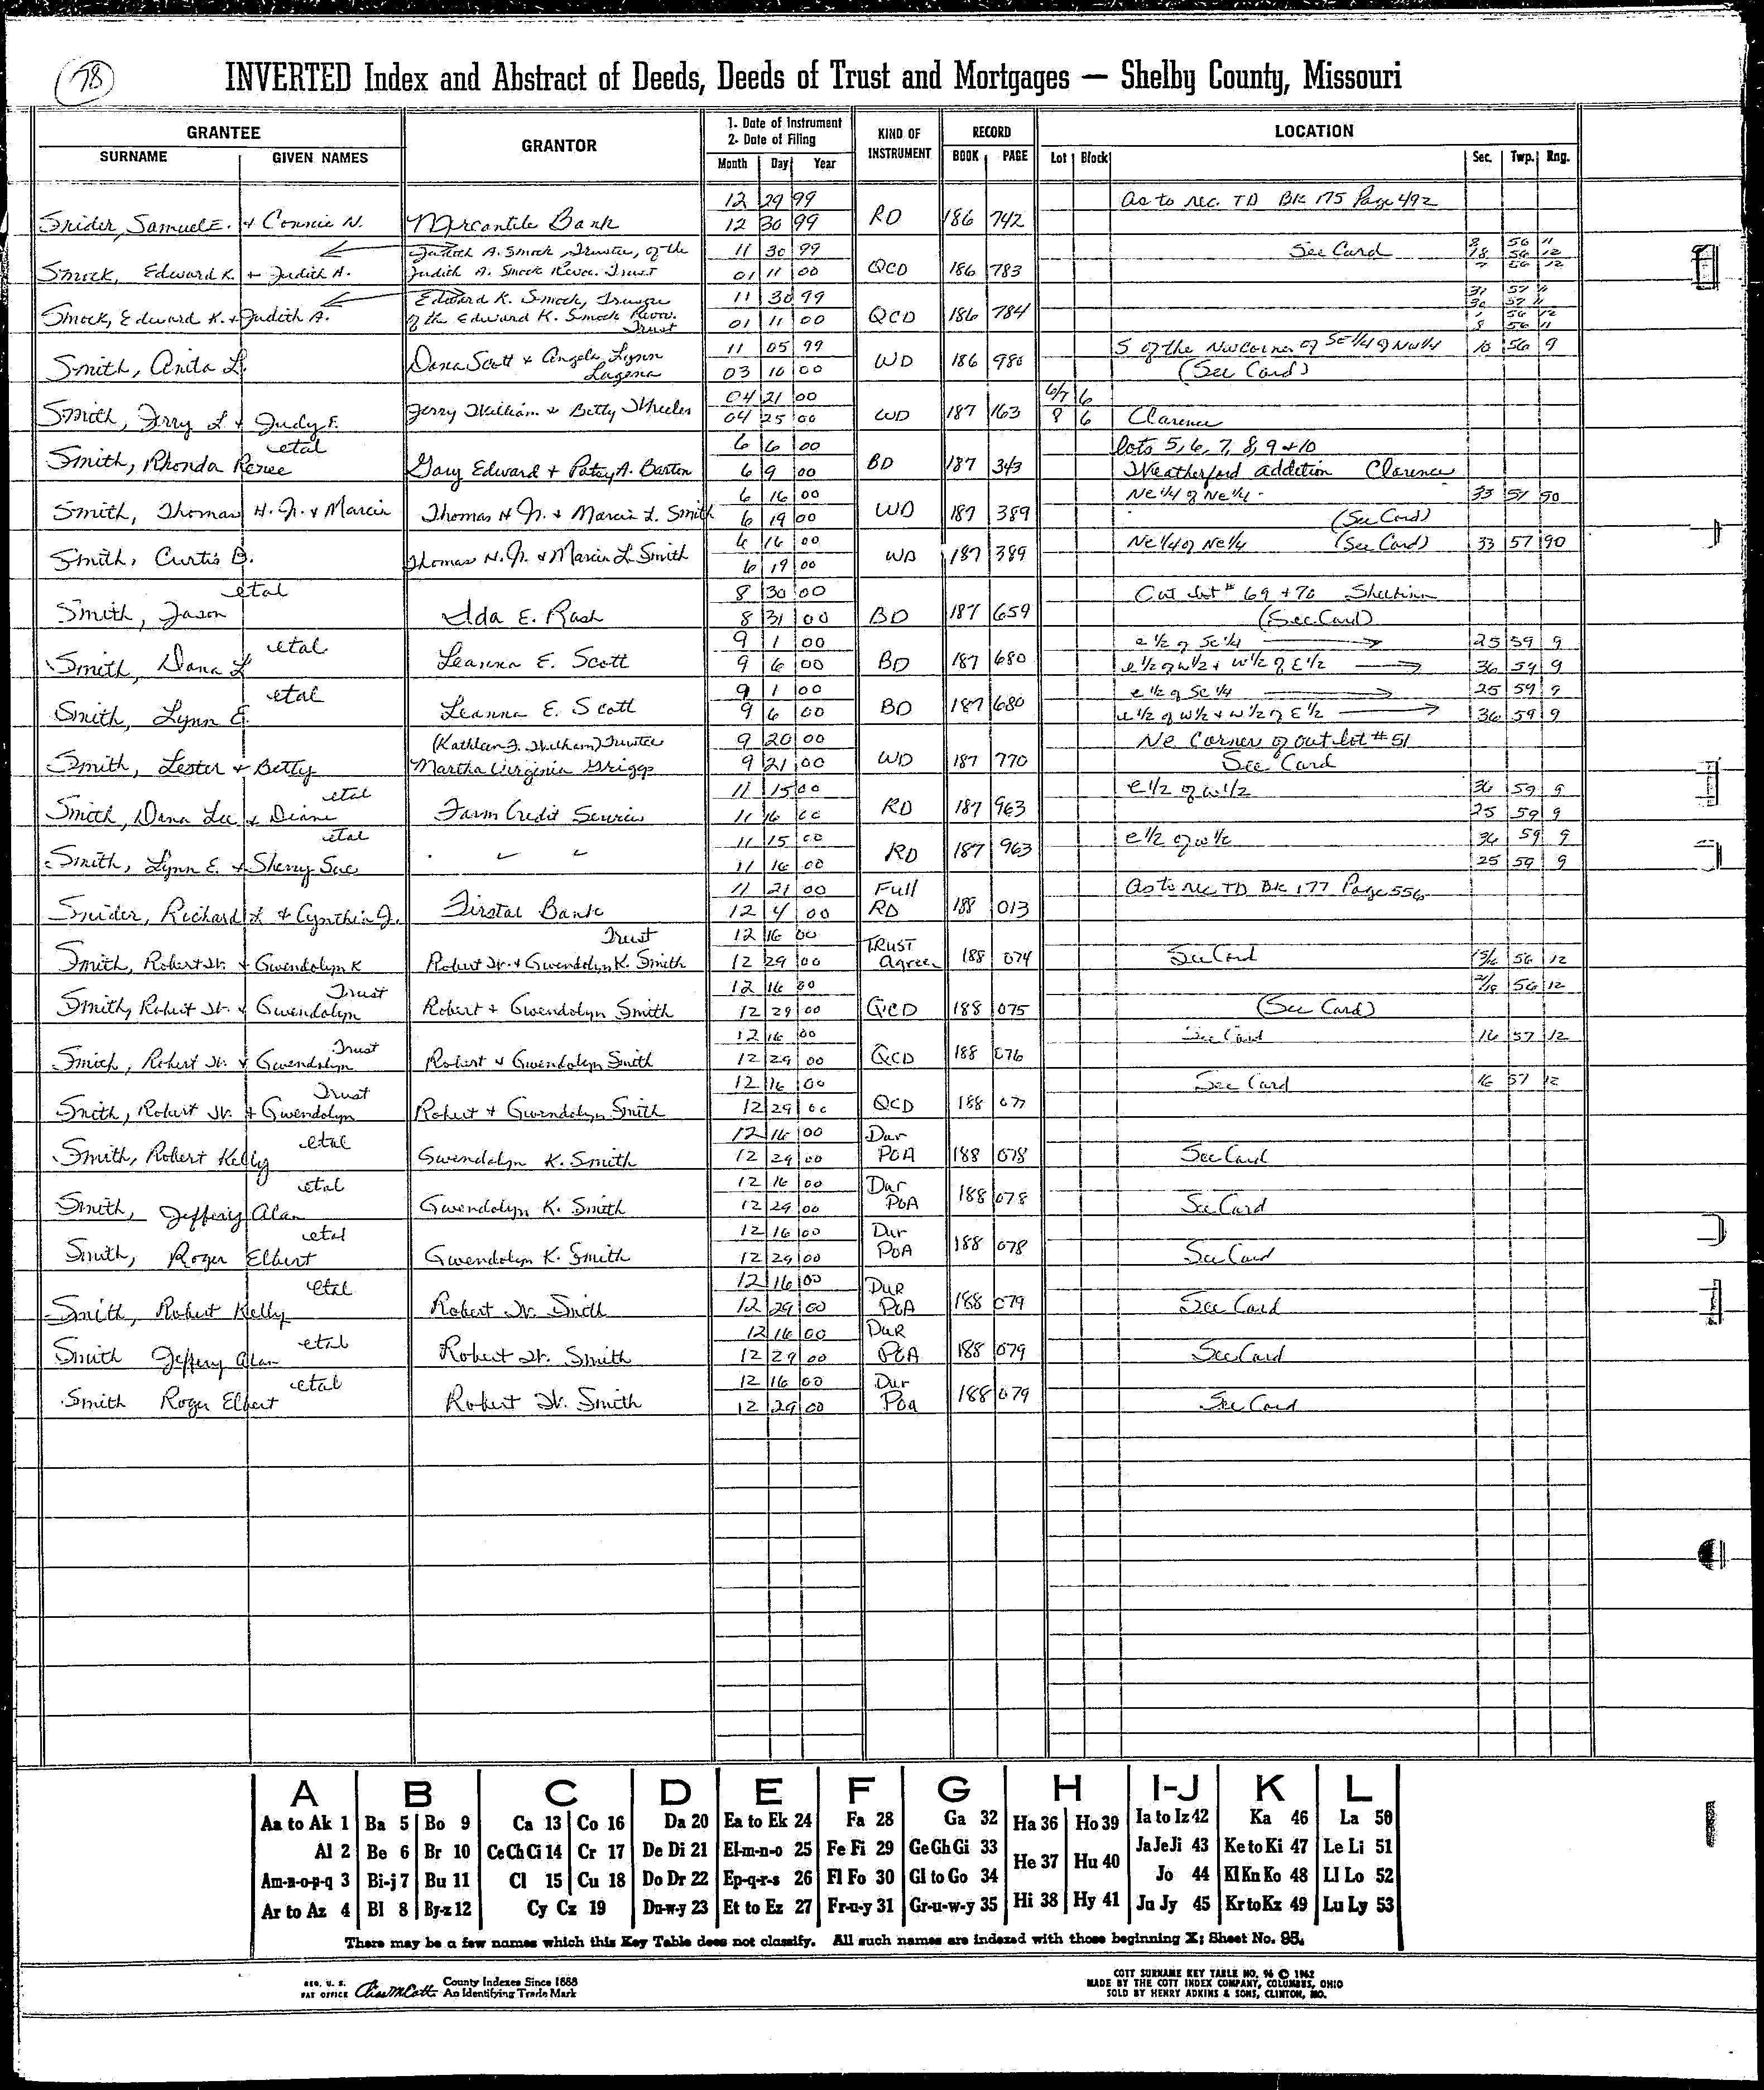 78
INVERTED Index and Abstract of Deeds, Deeds of Trust and Mortgages — Shelby County, Missouri
GRANTEE GRANTOR 1. Date of Instrument 2. Date of Filing KIND OF INSTRUMENT RECORD LOCATION
SURNAME GIVEN NAMES Month Day Year BOOK PAGE Lot Block Sec. Twp. Rng.
12 29 99 As to rec. TD BK 175 Page 492
Snider, Samuel E. + Connie N. Mercantile Bank 12 30 99 RD 186 742
Judith A. Smock Trustee, of the 11 30 99 See Card 8 56 11
18 56 12
Smock, Edward K. + Judith A. Judith A. Smock Revoc. Trust 01 11 00 QCD 186 783 56 12
Edward K. Smock, Trustee 11 30 99 31 57 11
30 57 11
Smock, Edward K. + Judith A. of the Edward K. Smock Revoc. Trust 01 11 00 QCD 186 784 1 56 12
8 56 11
11 05 99 S of the NW Corner of SE 1/4 of NW 1/4 10 56 9
Smith, Anita L. Dana Scott + Angela Lynn 03 16 00 WD 186 980 (See Card)
04 21 00 6/7 6
Smith, Jerry L + Judy F. Jerry William + Betty Wheeler 04 25 00 WD 187 163 8 6 Clarence
etal 6 6 00 lots 5, 6, 7, 8, 9 + 10
Smith, Rhonda Renee Gary Edward + Patsy A. Barton 6 9 00 BD 187 343 Weatherford addition Clarence
6 16 00 Ne 1/4 of Ne 1/4 33 57 90
Smith, Thomas H. Jr. + Marcia Thomas H Jr. + Marcia L. Smith 6 19 00 WD 187 389 (See Card)
6 16 00 Ne 1/4 of Ne 1/4 (See Card) 33 57 90
Smith, Curtis B. Thomas H. Jr. + Marcia L Smith 6 19 00 WD 187 389
etal 8 30 00 Out lot # 69 + 70 Shelbina
Smith, Jason Ida E. Rash 8 31 00 BD 187 659 (See Card)
etal 9 1 00 e 1/2 of Se 1/4 25 59 9
Smith, Dana L Leanna E. Scott 9 6 00 BD 187 680 e 1/2 of w 1/2 + w 1/2 of E 1/2 36 59 9
etal 9 1 00 e 1/2 of Se 1/4 25 59 9
Smith, Lynn E. Leanna E. Scott 9 6 00 BD 187 680 e 1/2 of w 1/2 + w 1/2 of E 1/2 36 59 9
(Kathleen F. Wilham) Trustee 9 20 00 Ne Corner of out lot # 51
Smith, Lester + Betty Martha Virginia Griggs 9 21 00 WD 187 770 See Card
etal 11 15 00 e 1/2 of w 1/2 36 59 9
Smith, Dana Lee + Diane Farm Credit Services 11 16 00 RD 187 963 25 59 9
etal 11 15 00 e 1/2 of w 1/2 36 59 9
Smith, Lynn E. + Sherry Sue " " " 11 16 00 RD 187 963 25 59 9
11 21 00 Full As to rec TD BK 177 Page 556
Snider, Richard L + Cynthia J. Firstar Bank 12 4 00 RD 188 013
Trust 12 16 00 TRUST
Smith, Robert W. + Gwendolyn K Robert W. + Gwendolyn K. Smith 12 29 00 Agreem 188 074 See Card 15/16 56 12
Trust 12 16 00 21/18 56 12
Smith, Robert W. + Gwendolyn Robert + Gwendolyn Smith 12 29 00 QCD 188 075 (See Card)
Trust 12 16 00 See Card 16 57 12
Smith, Robert W. + Gwendolyn Robert + Gwendolyn Smith 12 29 00 QCD 188 076
Trust 12 16 00 See Card 16 57 12
Smith, Robert W. + Gwendolyn Robert + Gwendolyn Smith 12 29 00 QCD 188 077
etal 12 16 00 Dur
Smith, Robert Kelly Gwendolyn K. Smith 12 29 00 POA 188 078 See Card
etal 12 16 00 Dur
Smith, Jeffery Alan Gwendolyn K. Smith 12 29 00 POA 188 078 See Card
etal 12 16 00 Dur
Smith, Roger Elbert Gwendolyn K. Smith 12 29 00 POA 188 078 See Card
etal 12 16 00 DUR
Smith, Robert Kelly Robert W. Smith 12 29 00 POA 188 079 See Card
etal 12 16 00 DUR
Smith Jeffery Alan Robert W. Smith 12 29 00 POA 188 079 See Card
etal 12 16 00 Dur
Smith Roger Elbert Robert W. Smith 12 29 00 POA 188 079 See Card
A B C D E F G H I-J K L
Aa to Ak 1 Ba 5 Bo 9 Ca 13 Co 16 Da 20 Ea to Ek 24 Fa 28 Ga 32 Ha 36 Ho 39 Ia to Iz 42 Ka 46 La 50
Al 2 Be 6 Br 10 Ce Ch Ci 14 Cr 17 De Di 21 El-m-n-o 25 Fe Fi 29 Ge Gh Gi 33 He 37 Hu 40 Ja Je Ji 43 Ke to Ki 47 Le Li 51
Am-n-o-p-q 3 Bi-j 7 Bu 11 Cl 15 Cu 18 Do Dr 22 Ep-q-r-s 26 Fl Fo 30 Gl to Go 34 Jo 44 Kl Kn Ko 48 Ll Lo 52
Ar to Az 4 Bl 8 By-z 12 Cy Cz 19 Du-w-y 23 Et to Ez 27 Fr-u-y 31 Gr-u-w-y 35 Hi 38 Hy 41 Ju Jy 45 Kr to Kz 49 Lu Ly 53
There may be a few names which this Key Table does not classify. All such names are indexed with those beginning X; Sheet No. 95.
REG. U. S. PAT OFFICE County Indexes Since 1888 An Identifying Trade Mark
COTT SURNAME KEY TABLE NO. 96 © 1962
MADE BY THE COTT INDEX COMPANY, COLUMBUS, OHIO
SOLD BY HENRY ADKINS & SONS, CLINTON, MO.